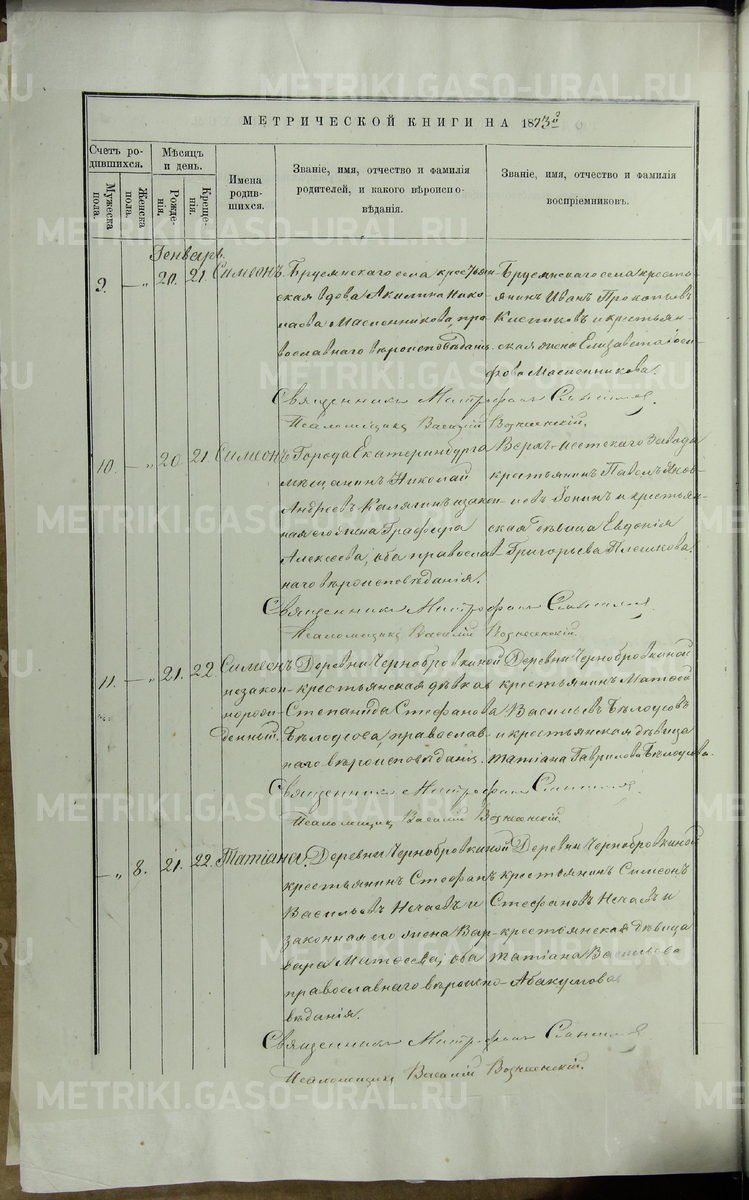 МЕТРИЧЕСКОЙ КНИГИ НА 1873й
Счетъ ро-
дившихся.
Мужеска
пола.
Женска
пола.
Мѣсяцъ
и день.
Рожде-
нія.
Креще-
нія.
Имена
родив-
шихся.
Званіе, имя, отчество и фамилія
родителей, и какого вѣроиспо-
вѣданія.
Званіе, имя, отчество и фамилія
воспріемниковъ.
Генварь
9. — „ 20. 21. Симеонъ. Бруснянскаго села крестьян-
ская вдова Акилина Нико-
лаева Масленникова, пра-
вославнаго вѣроисповѣданія.
Бруснянскаго села кресть-
янинъ Иванъ Прокопьевъ
и крестьян-
ская жена Елизавета Іоси-
фова Масленникова.
Священникъ Митрофанъ
Псаломщикъ Василій Вознесенскій.
10. — „ 20. 21. Симеонъ. Города Екатеринбурга
мещанинъ Николай
Андреевъ Калягинъ и закон-
ная его жена Глафира
Алексеева, оба православ-
наго вѣроисповѣданія.
Верхъ-Исетскаго Завода
крестьянинъ Павелъ Яков-
левъ и крестьян-
ская дѣвица Евдокія
Григорьева Плешкова.
Священникъ Митрофанъ
Псаломщикъ Василій Вознесенскій.
11. — „ 21. 22. Симеонъ
незакон-
норож-
денный.
Деревни Чернобровкиной
крестьянская дѣвка
Степанида Стефанова
Бѣлоусова, православ-
наго вѣроисповѣданія.
Деревни Чернобровкиной
крестьянинъ Матѳей
Васильевъ Бѣлоусовъ
и крестьянская дѣвица
Татіана Гаврилова Бѣлоусова.
Священникъ Митрофанъ
Псаломщикъ Василій Вознесенскій.
— „ 8. 21. 22. Татіана. Деревни Чернобровкиной
крестьянинъ Стефанъ
Васильевъ Нечаевъ и
законная его жена Вар-
вара Матѳеева, оба
православнаго вѣроиспо-
вѣданія.
Деревни Чернобровкиной
крестьянинъ Симеонъ
Стефановъ Нечаевъ и
крестьянская дѣвица
Татіана Васильева
Абакумова
Священникъ Митрофанъ
Псаломщикъ Василій Вознесенскій.
METRIKI.GASO-URAL.RU